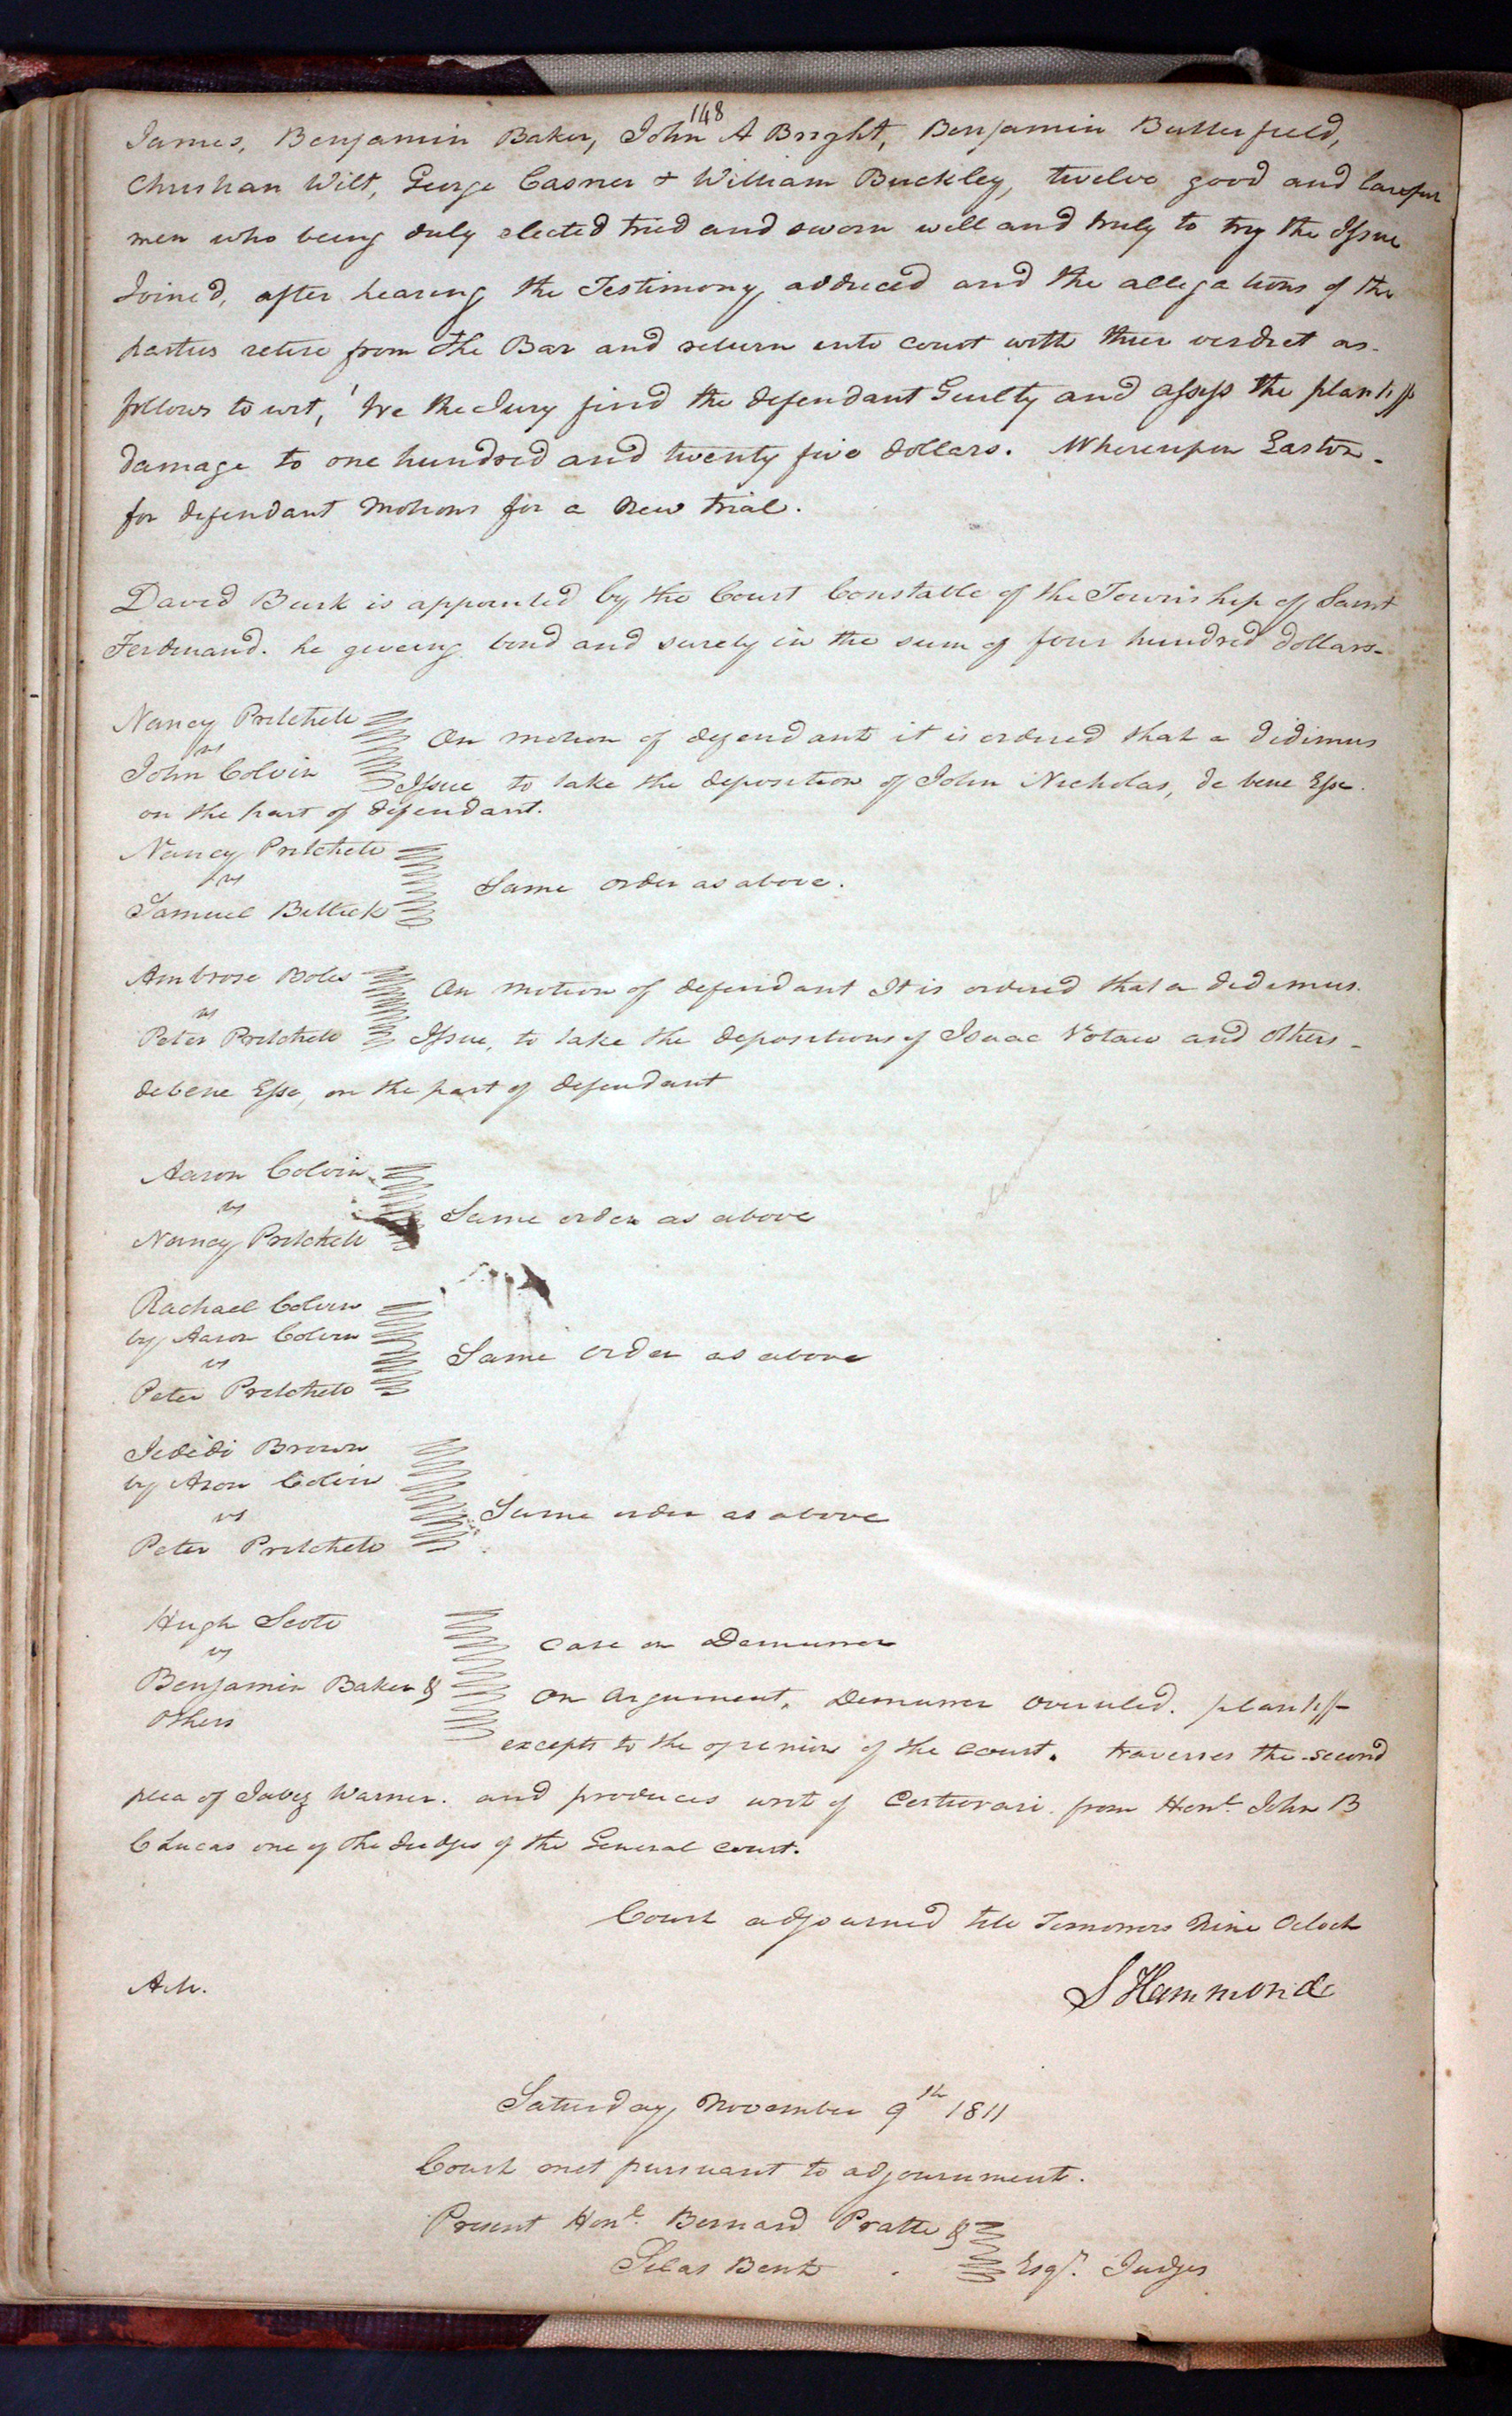 148
James, Benjamin Baker, John A Bright, Benjamin Butterfield,
Christian Wilt, George Casner & William Buckley, twelve good and lawful
men who being duly elected tried and sworn well and truly to try the Issue
Joined, after hearing the Testimony adduced and the allegations of the
parties retire from the Bar and return into court with their verdict as
follows to wit, 'We the Jury find the defendant Guilty and assess the plantiff
damage to one hundred and twenty five dollars. Whereupon Easton
for defendant motions for a new trial.
David Burk is appointed by the Court Constable of the Township of Saint
Ferdinand. he giveing bond and surety in the sum of four hundred dollars
Nancy Pritchett
vs
John Colvin
On motion of defendant it is ordered that a didimus
Issue to take the deposition of John Nicholas, de bene Esse.
on the part of defendant.
Nancy Pritchett
vs
Samuel
Same order as above.
Ambrose Boles
vs
Peter Pritchett
On motion of defendant It is ordered that a dedimus.
Issue, to take the depositions of Isaac Votaw and others
debene Esse, on the part of defendant
Aaron Colvin
vs
Nancy Pritchett
Same order as above
Rachael Colvin
by Aaron Colvin
vs
Peter Pritchett
Same order as above
Jedidi Brown
by Aron Colvin
vs
Peter Pritchett
Same order as above
Hugh Scott
vs
Benjamin Baker &
Others
Case on Demurrer
On Argument, Demurrer overuled. plantiff
excepts to the openion of the court. traverses the second
plea of Jabez Warner. and produces writ of Certiorari from Honl. John B
C Lucas one of the Judges of the General court.
Court adjourned till Tomorrow Nine Oclock
A.M.
S Hammond
Saturday November 9th 1811
Court met pursuant to adjournment.
Present Honl. Bernard Pratte &
Silas Bent
Esqr. Judges